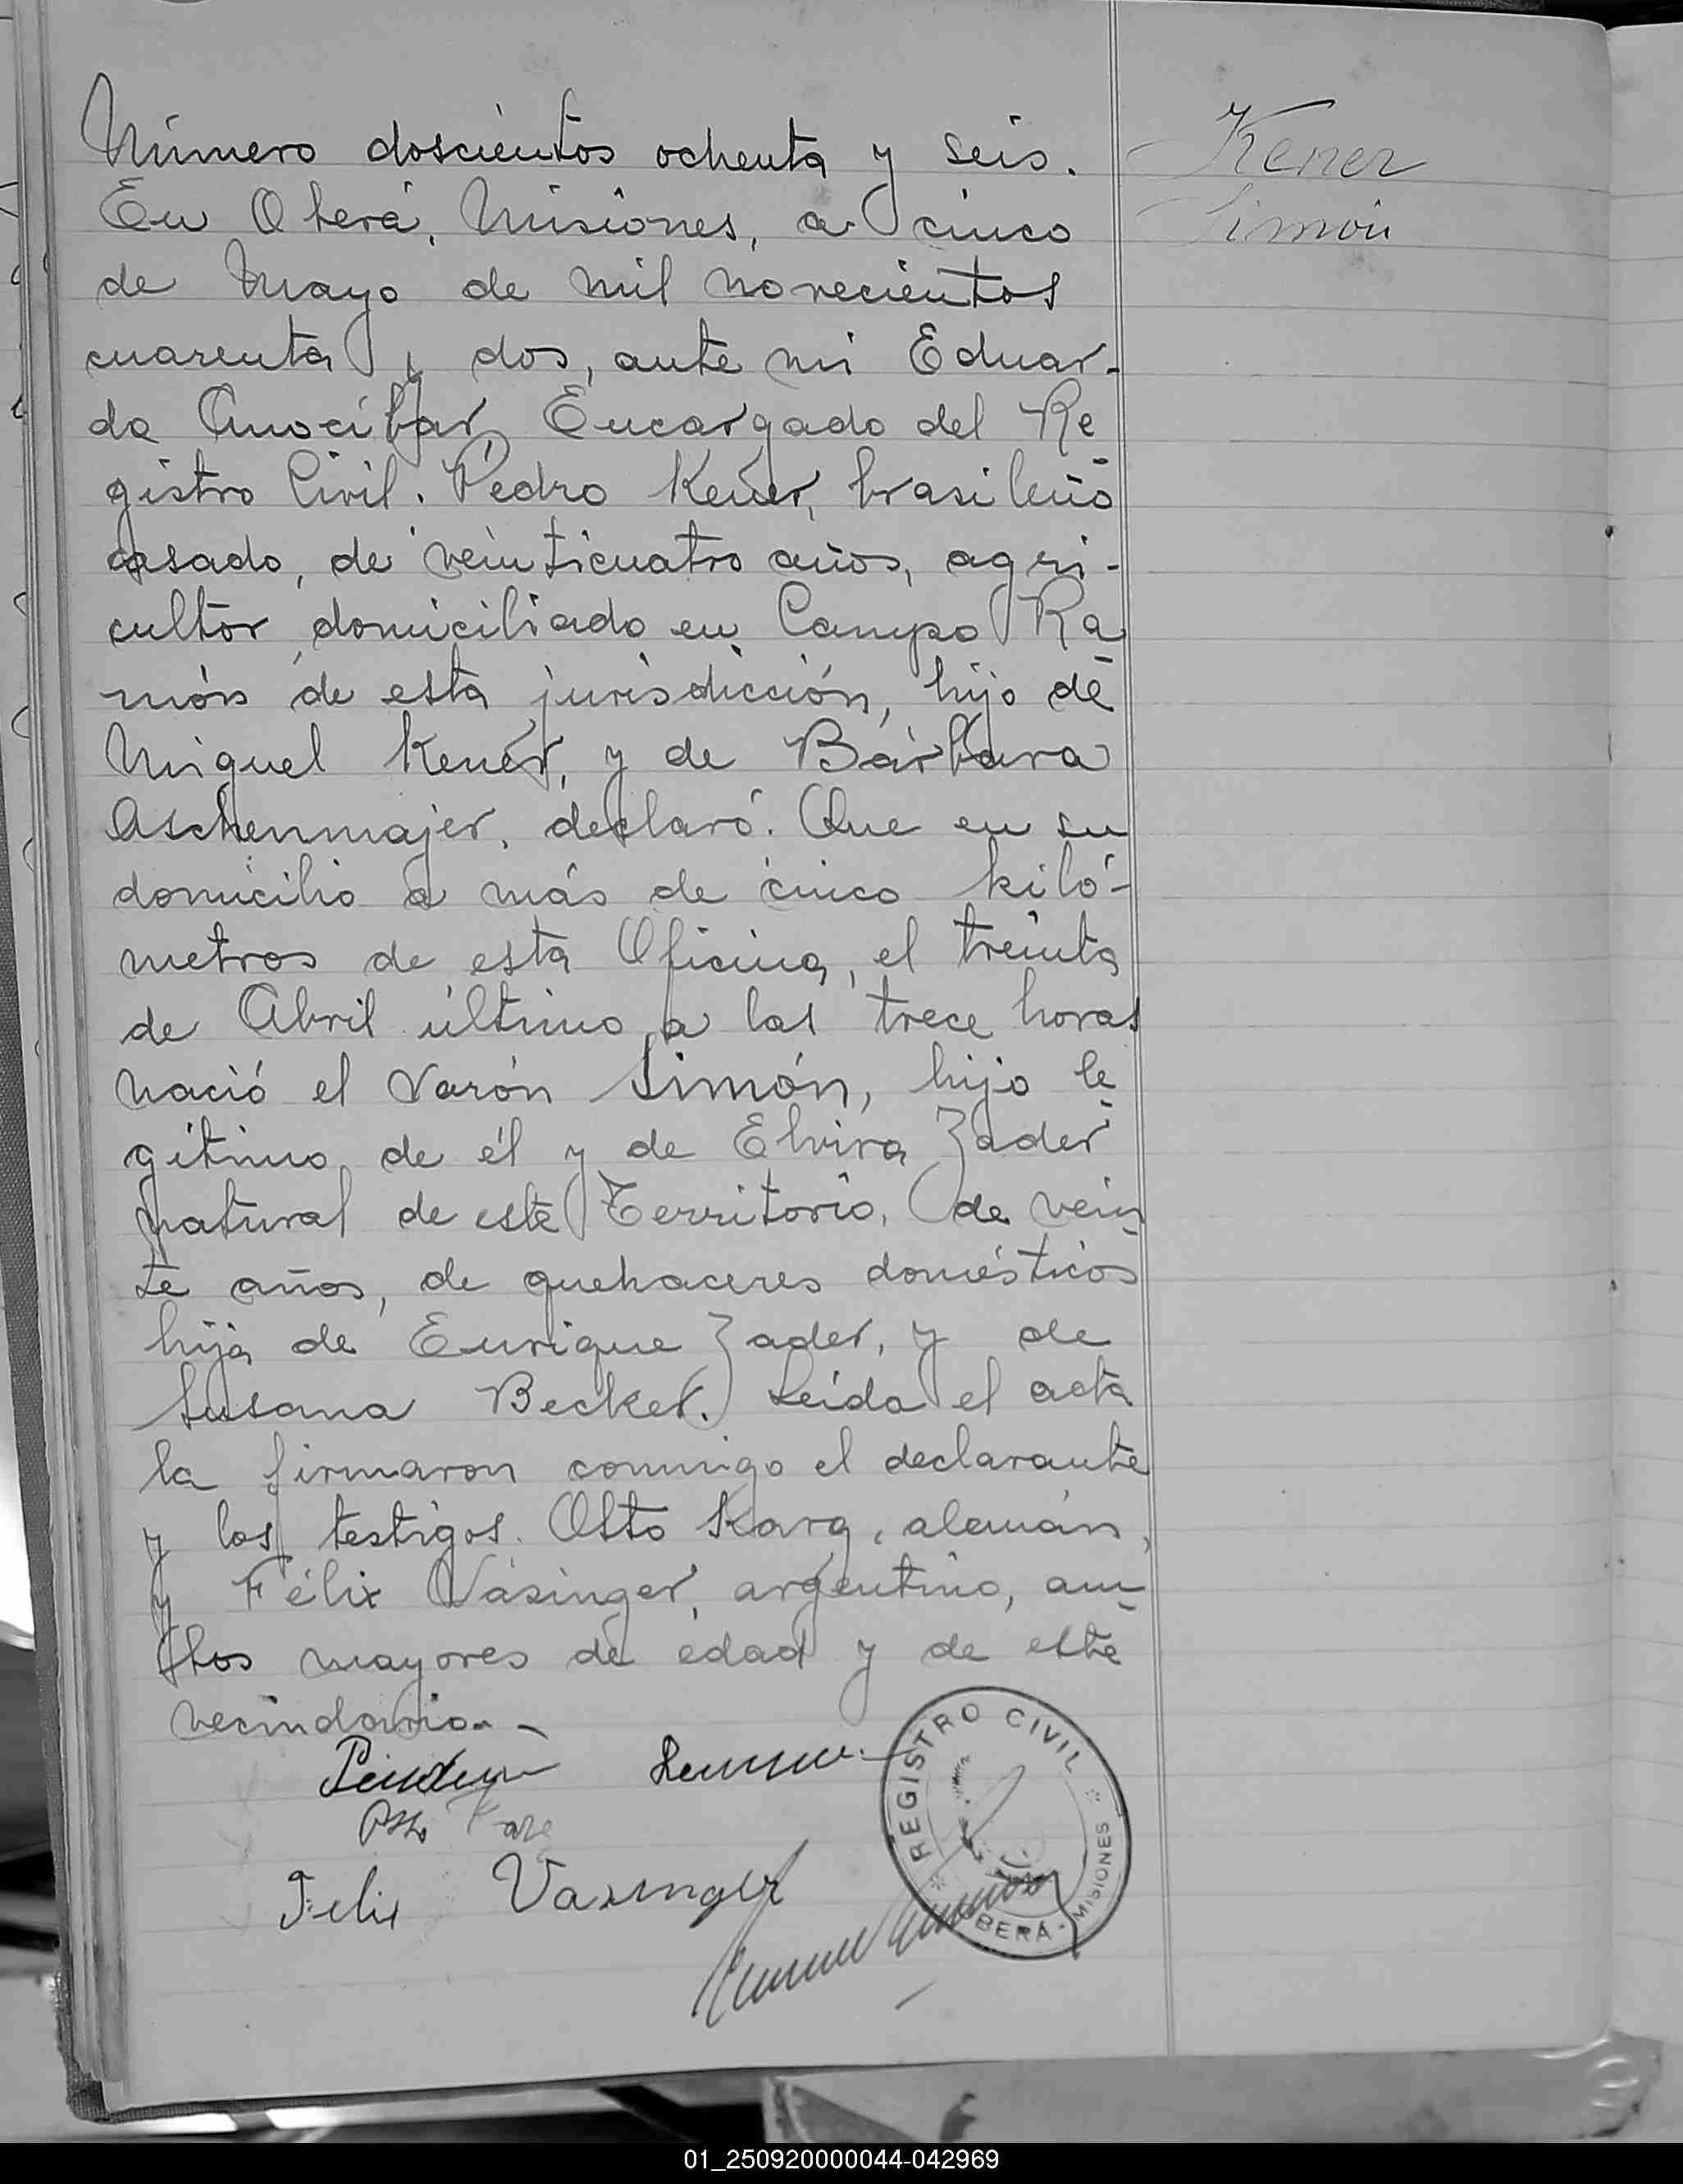 Número doscientos ochenta y seis.
Kener
Simón
En Oberá, Misiones, a cinco
de Mayo de mil novecientos
cuarenta y dos, ante mi Eduar-
do Anocíbar, Encargado del Re-
gistro Civil. Pedro Kener, brasileño
casado, de veinticuatro años, agri-
cultor, domiciliado en Campo Ra-
món de esta jurisdicción, hijo de
Miguel Kener, y de Bárbara
Aschenmajer, declaró: Que en su
domicilio a más de cinco kiló-
metros de esta Oficina, el treinta
de Abril último, a las trece horas
nació el varón Simón, hijo le-
gítimo, de él y de Elvira Zader
natural de este Territorio, de vein-
te años, de quehaceres domésticos
hija de Enrique Zader, y de
Susana Becker. Leída el acta
la firmaron conmigo el declarante
y los testigos. Otto Karg, alemán,
y Félix Vásinger, argentino, am-
bos mayores de edad y de este
vecindario.-
Otto Karg
Felix Vasinger
REGISTRO CIVIL
OBERÁ - MISIONES
01_250920000044-042969